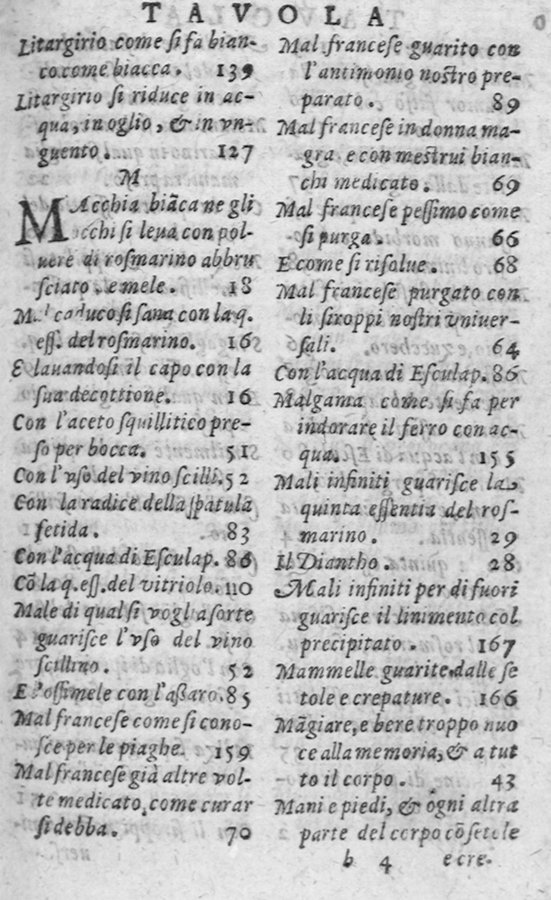 TAVOLA
Litargirio come si fa bian-
co come biacca. 139
Litargirio si riduce in ac-
qua, in oglio, & in vn-
guento. 127
M
MAcchia biãca ne gli
occhi si leua con pol-
uere di rosmarino abbru
sciato e mele. 18
Mal caduco si sana con la q.
ess. del rosmarino. 16
E lauandosi il capo con la
sua decottione. 16
Con l'aceto squillitico pre-
so per bocca. 51
Con l'vso del vino scilli. 52
Con la radice della spatula
fetida. 83
Con l'acqua di Esculap. 86
Cõ la q. ess. del vitriolo. 110
Male di qual si vogli a sorte
guarisce l'vso del vino
scillino. 52
E l'ossimele con l'assaro. 85
Mal francese come si cono-
sce per le piaghe. 159
Mal francese già altre vol-
te medicato come curar
si debba. 70
Mal francese guarito con
l'antimonio nostro pre-
parato. 89
Mal francese in donna ma-
gra e con mestrui bian-
chi medicato. 69
Mal francese pessimo come
si purga 66
E come si risolue. 68
Mal francese purgato con
li siroppi nostri vniuer-
sali. 64
Con l'acqua di Esculap. 86
Malgama come si fa per
indorare il ferro con ac-
qua. 155
Mali infiniti guarisce la
quinta essentia del ros-
marino. 29
Il Diantho. 28
Mali infiniti per di fuori
guarisce il linimento col
precipitato. 167
Mammelle guarite dalle se
tole e crepature. 166
Mãgiare, e bere troppo nuo
ce alla memoria, & a tut
to il corpo. 43
Mani e piedi, & ogni altra
parte del corpo cõ setole
b 4 e cre-